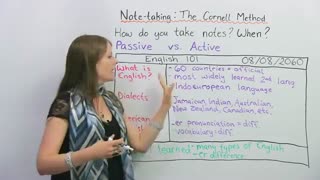 Note-taking: The Cornell Method
How do you take notes? When?
Passive vs. Active
English 101 08/08/2060
What is English?
60 countries = official
most widely learned 2nd lang
Indoeuropean language
Dialects
Jamaican, Indian, Australian,
New Zealand, Canadian, etc.
-er pronunciation = diff.
vocabulary = diff.
learned many types of English
-er difference